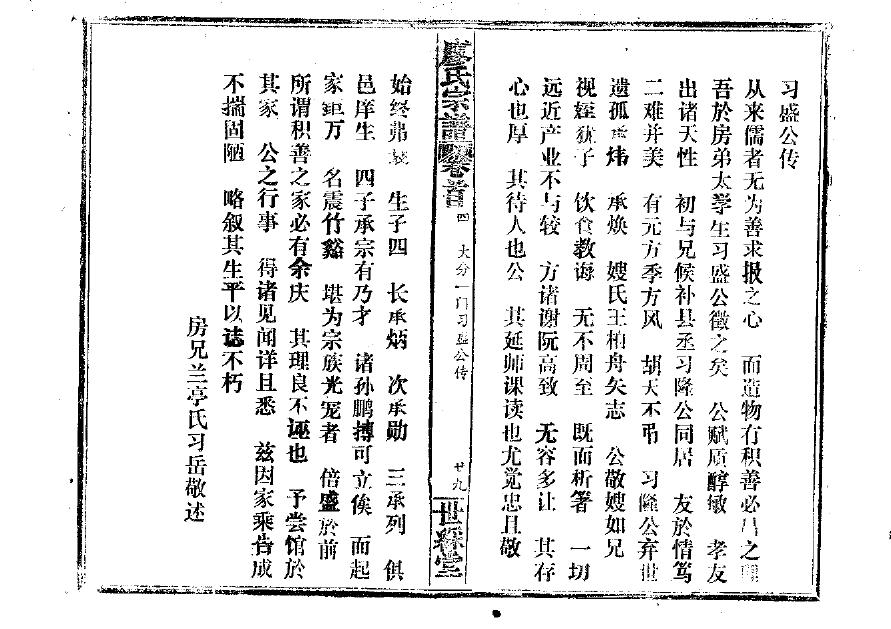 习盛公传
从来儒者无为善求报之心 而造物冇积善必昌之理
吾於房弟太学生习盛公徵之矣 公赋质醇敏 孝友
出诸天性 初与兄候补县丞习隆公同居 友於情笃
二难并美 有元方季方风 胡天不弔 习隆公弃世
遗孤承炜 承焕 嫂氏王柏舟矢志 公敬嫂如兄
视侄犹子 饮食教诲 无不周至 既而析箸 一切
远近产业不与较 方诸谢阮高致 无容多让 其存
心也厚 其待人也公 其延师课读也尤觉忠且敬
廖氏宗谱 卷首 四 大分一门习盛公传 廿九 世綵堂
始终弗衰 生子四 长承炳 次承勋 三承列 俱
邑庠生 四子承宗有乃才 诸孙鹏搏可立俟 而起
家钜万 名震竹谿 堪为宗族光宠者 倍盛於前
所谓积善之家必有余庆 其理良不诬也 予尝馆於
其家 公之行事 得诸见闻详且悉 兹因家乘告成
不揣固陋 略叙其生平以誌不朽
房兄兰亭氏习岳敬述